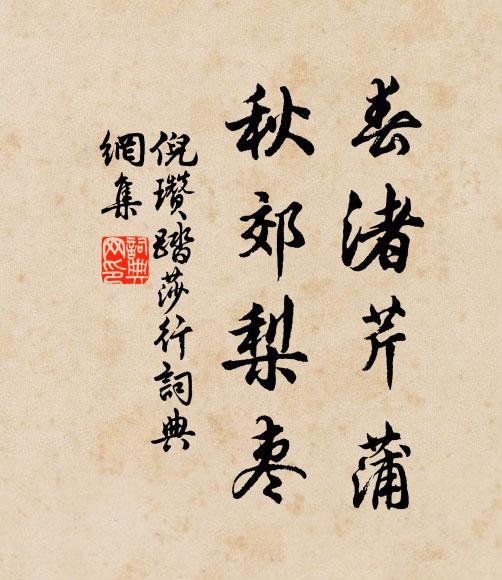 春渚芹蒲
秋郊梨枣
倪瓒踏莎行词典
網集
詞典网印